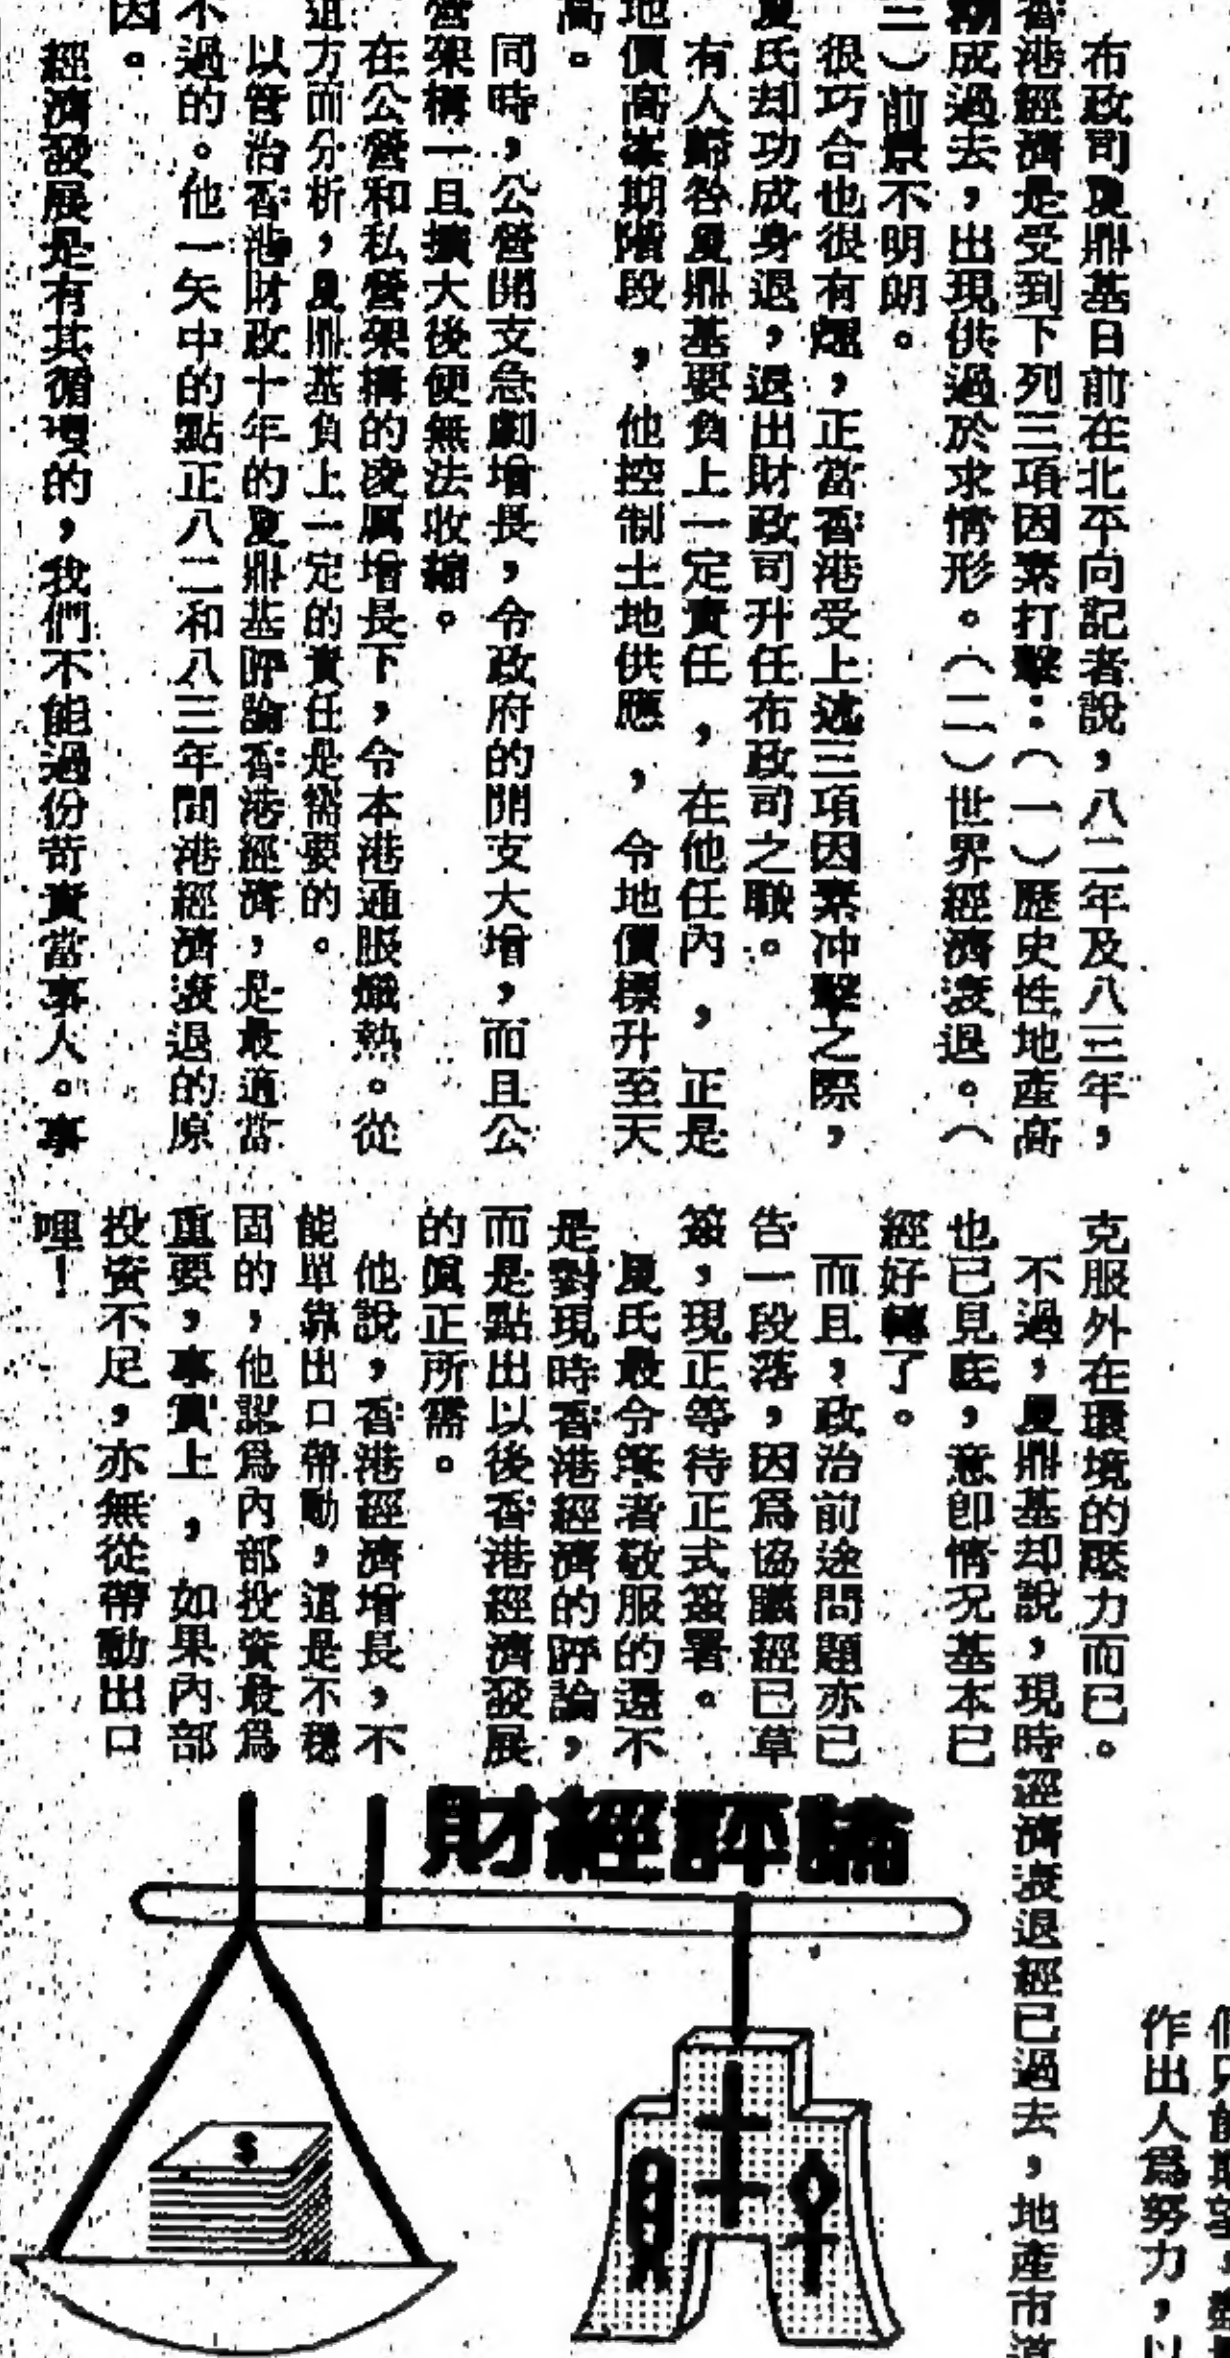 布政司夏鼎基日前在北平向記者說，八二年及八三年，
香港經濟是受到下列三項因素打擊：（一）歷史性地產高
潮成過去，出現供過於求情形。（二）世界經濟衰退。（
三）前景不明朗。
很巧合也很有趣，正當香港受上述三項因素冲擊之際，
夏氏却功成身退，退出財政司升任布政司之職。
有人歸咎夏鼎基要負上一定責任，在他任內，正是
地價高峯期階段，他控制土地供應，令地價標升至天
高。
同時，公營開支急劇增長，令政府的開支大增，而且公
營架構一旦擴大後便無法收縮。
在公營和私營架構的凌厲增長下，令本港通脹熾熱。從
這方面分析，夏鼎基負上一定的責任是需要的。
以管治香港財政十年的夏鼎基評論香港經濟，是最適當
不過的。他一矢中的點正八二和八三年間港經濟衰退的原
因。
經濟發展是有其循環的，我們不能過份苛責當事人。事
作出人爲努力，以
克服外在環境的壓力而已。
不過，夏鼎基却說，現時經濟衰退經已過去，地產市道
也已見底，意卽情況基本已
經好轉了。
而且，政治前途問題亦已
告一段落，因爲協議經已草
簽，現正等待正式簽署。
夏氏最令筆者敬服的還不
是對現時香港經濟的評論，
而是點出以後香港經濟發展
的眞正所需。
他說，香港經濟增長，不
能單靠出口帶動，這是不穩
固的，他認爲內部投資最爲
重要，事實上，如果內部
投資不足，亦無從帶動出口
哩！
財經評論
$